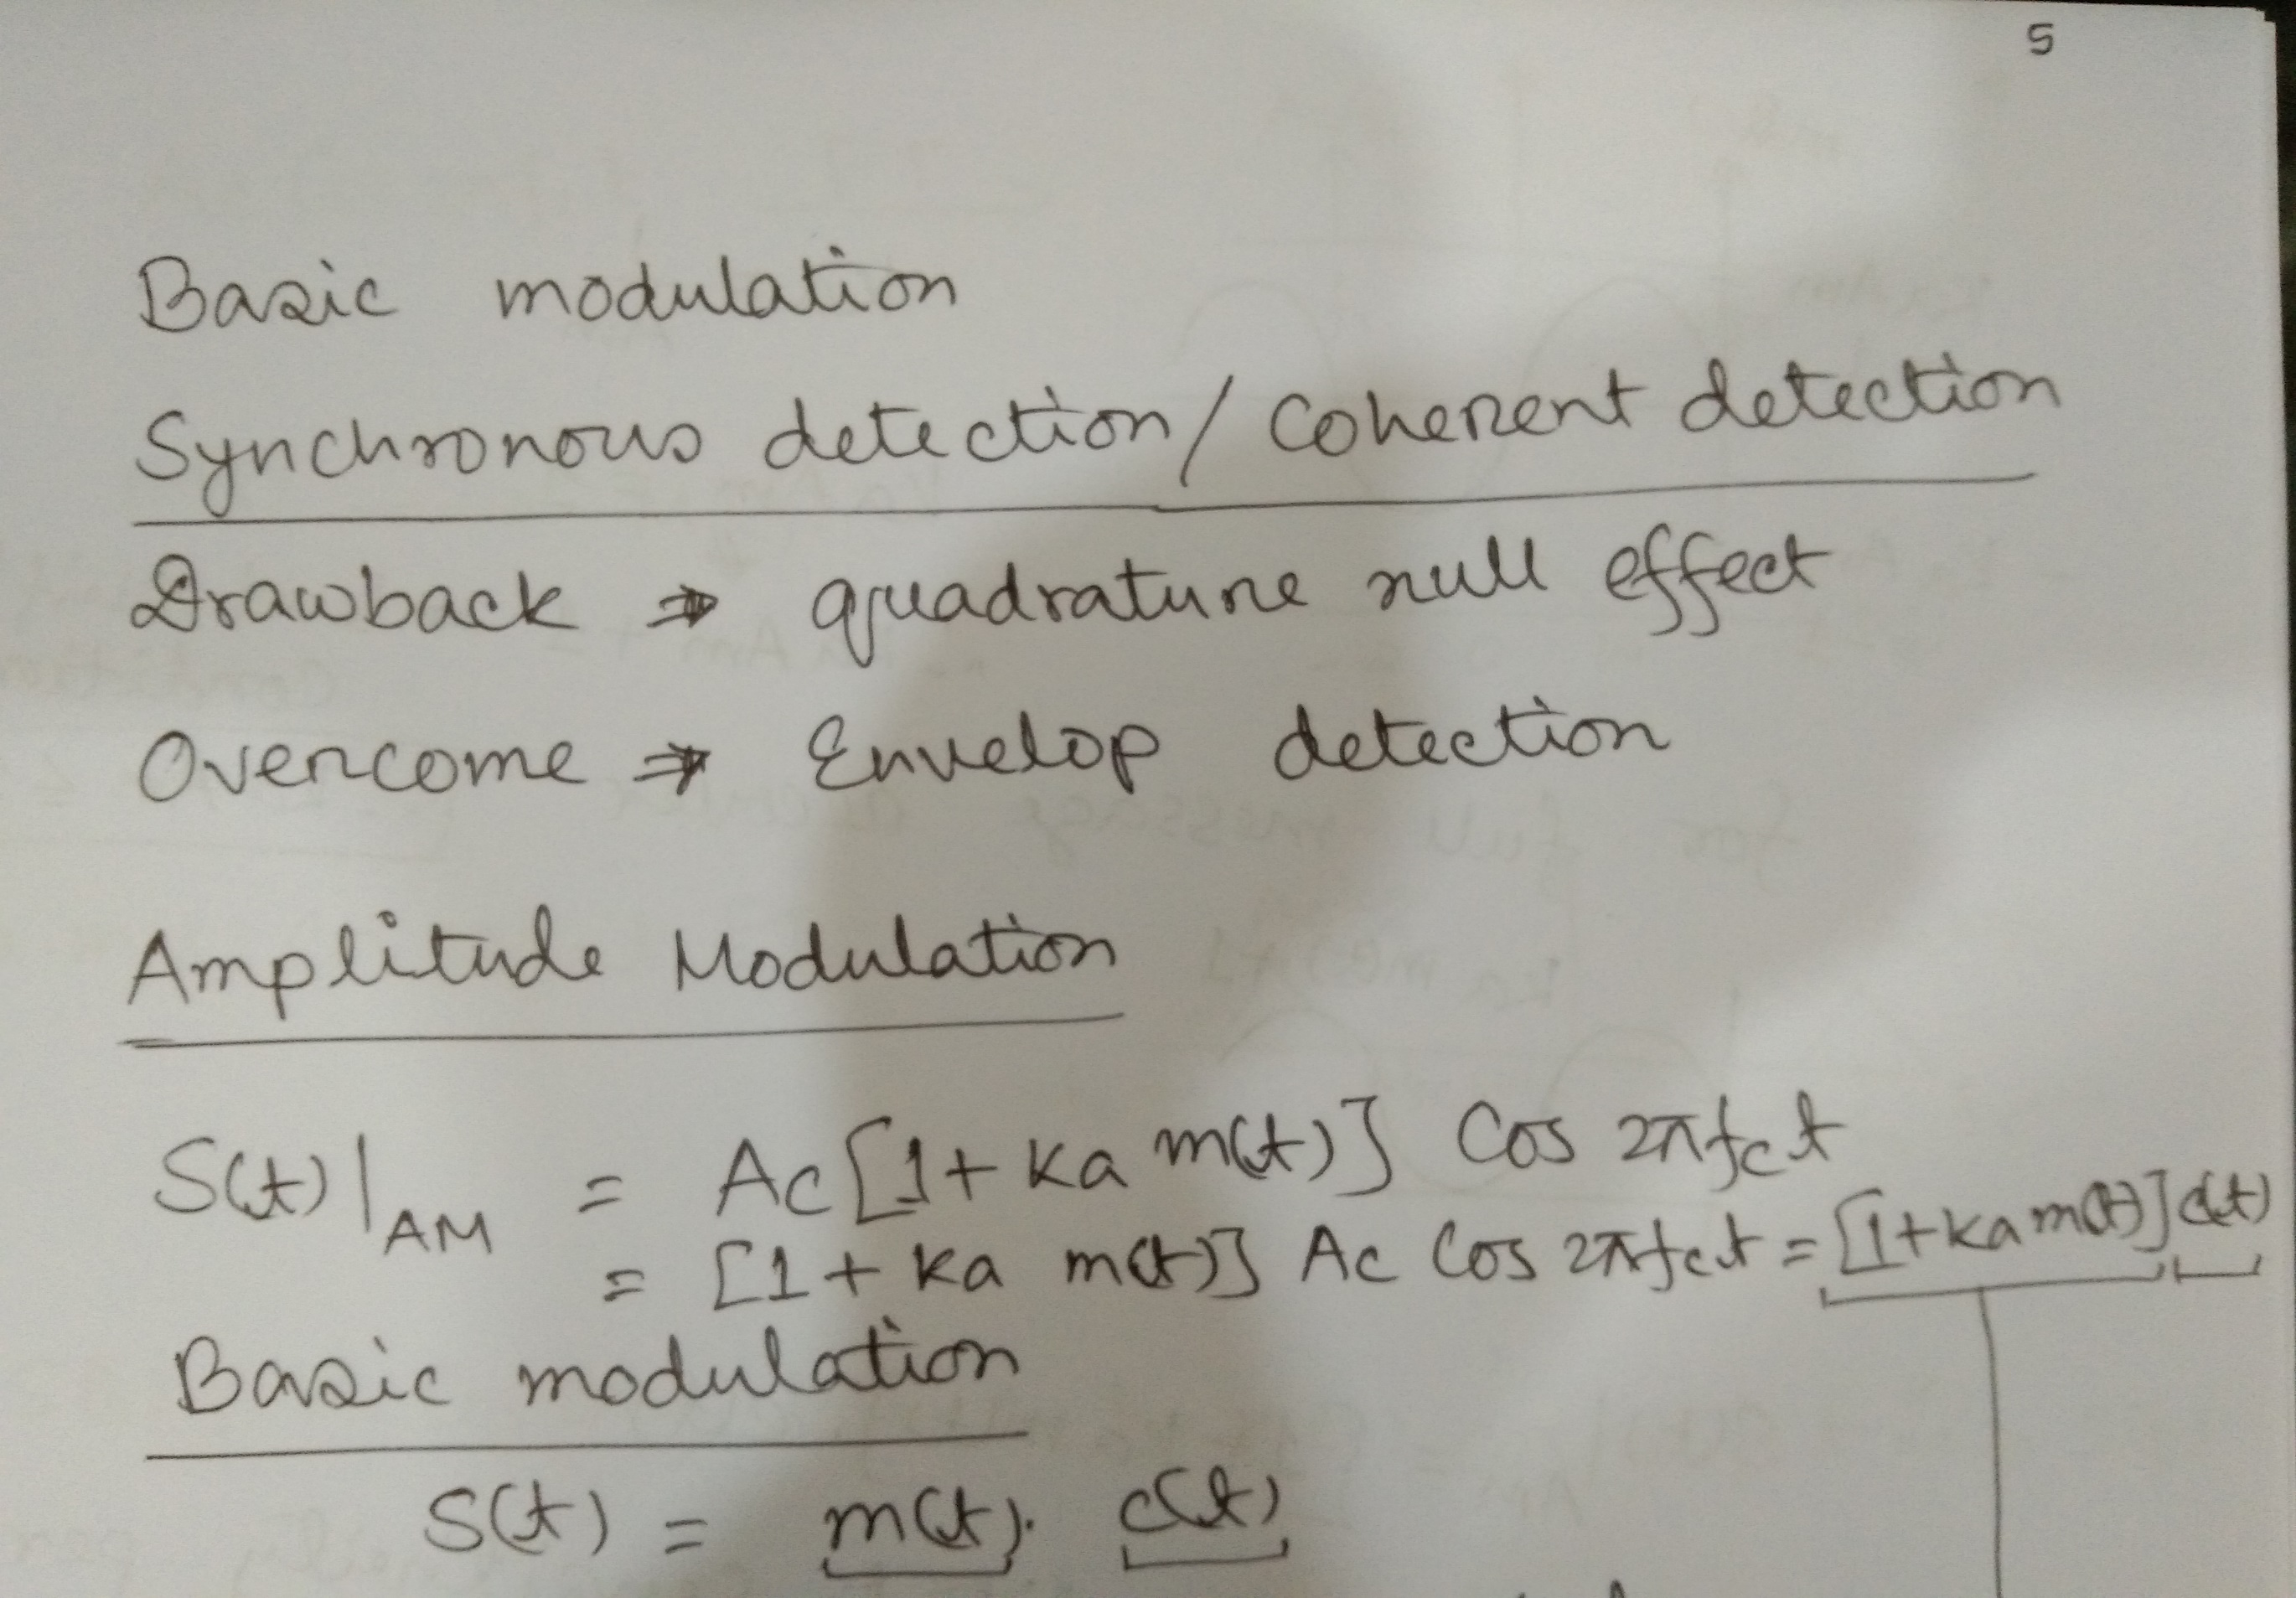 5
Basic modulation
Synchronous detection/ Coherent detection
Drawback ⇒ quadrature null effect
Overcome ⇒ Envelop detection
Amplitude Modulation
S(t)|AM = Ac[1+ Ka m(t)] Cos 2πfct
= [1+ Ka m(t)] Ac Cos 2πfct = [1+Ka m(t)] c(t)
Basic modulation
S(t) = m(t). c(t)